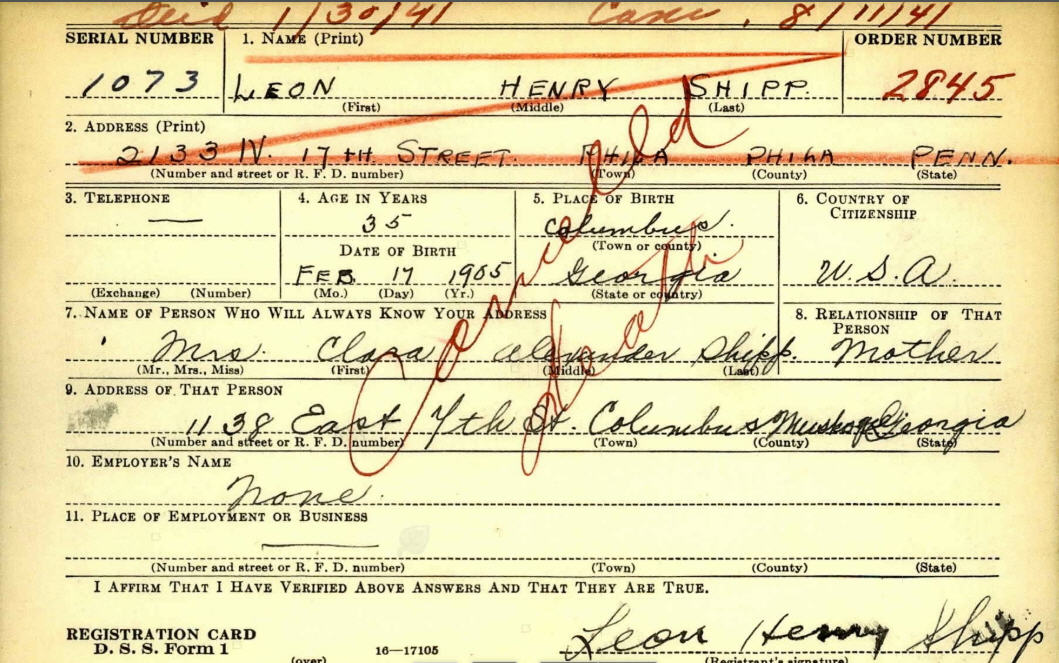 Died 1/30/41 Canc. 8/11/41
SERIAL NUMBER 1. NAME (Print) ORDER NUMBER
1073 LEON HENRY SHIPP. 2845
(First) (Middle) (Last)
2. ADDRESS (Print)
2133 N. 17TH STREET. PHILA PHILA PENN.
(Number and street or R. F. D. number) (Town) (County) (State)
3. TELEPHONE 4. AGE IN YEARS 5. PLACE OF BIRTH 6. COUNTRY OF CITIZENSHIP
— 35 Columbus.
DATE OF BIRTH (Town or county)
FEB. 17 1905 Georgia U.S.A.
(Exchange) (Number) (Mo.) (Day) (Yr.) (State or country)
7. NAME OF PERSON WHO WILL ALWAYS KNOW YOUR ADDRESS 8. RELATIONSHIP OF THAT PERSON
Mrs. Clara Alexander Shipp. Mother
(Mr., Mrs., Miss) (First) (Middle) (Last)
9. ADDRESS OF THAT PERSON
1138 East 7th St. Columbus Georgia
(Number and street or R. F. D. number) (Town) (County) (State)
10. EMPLOYER'S NAME
None.
11. PLACE OF EMPLOYMENT OR BUSINESS
—
(Number and street or R. F. D. number) (Town) (County) (State)
I AFFIRM THAT I HAVE VERIFIED ABOVE ANSWERS AND THAT THEY ARE TRUE.
REGISTRATION CARD
D. S. S. Form 1 16—17105 Leon Henry Shipp
(over) (Registrant's signature)
Cancelled
Death